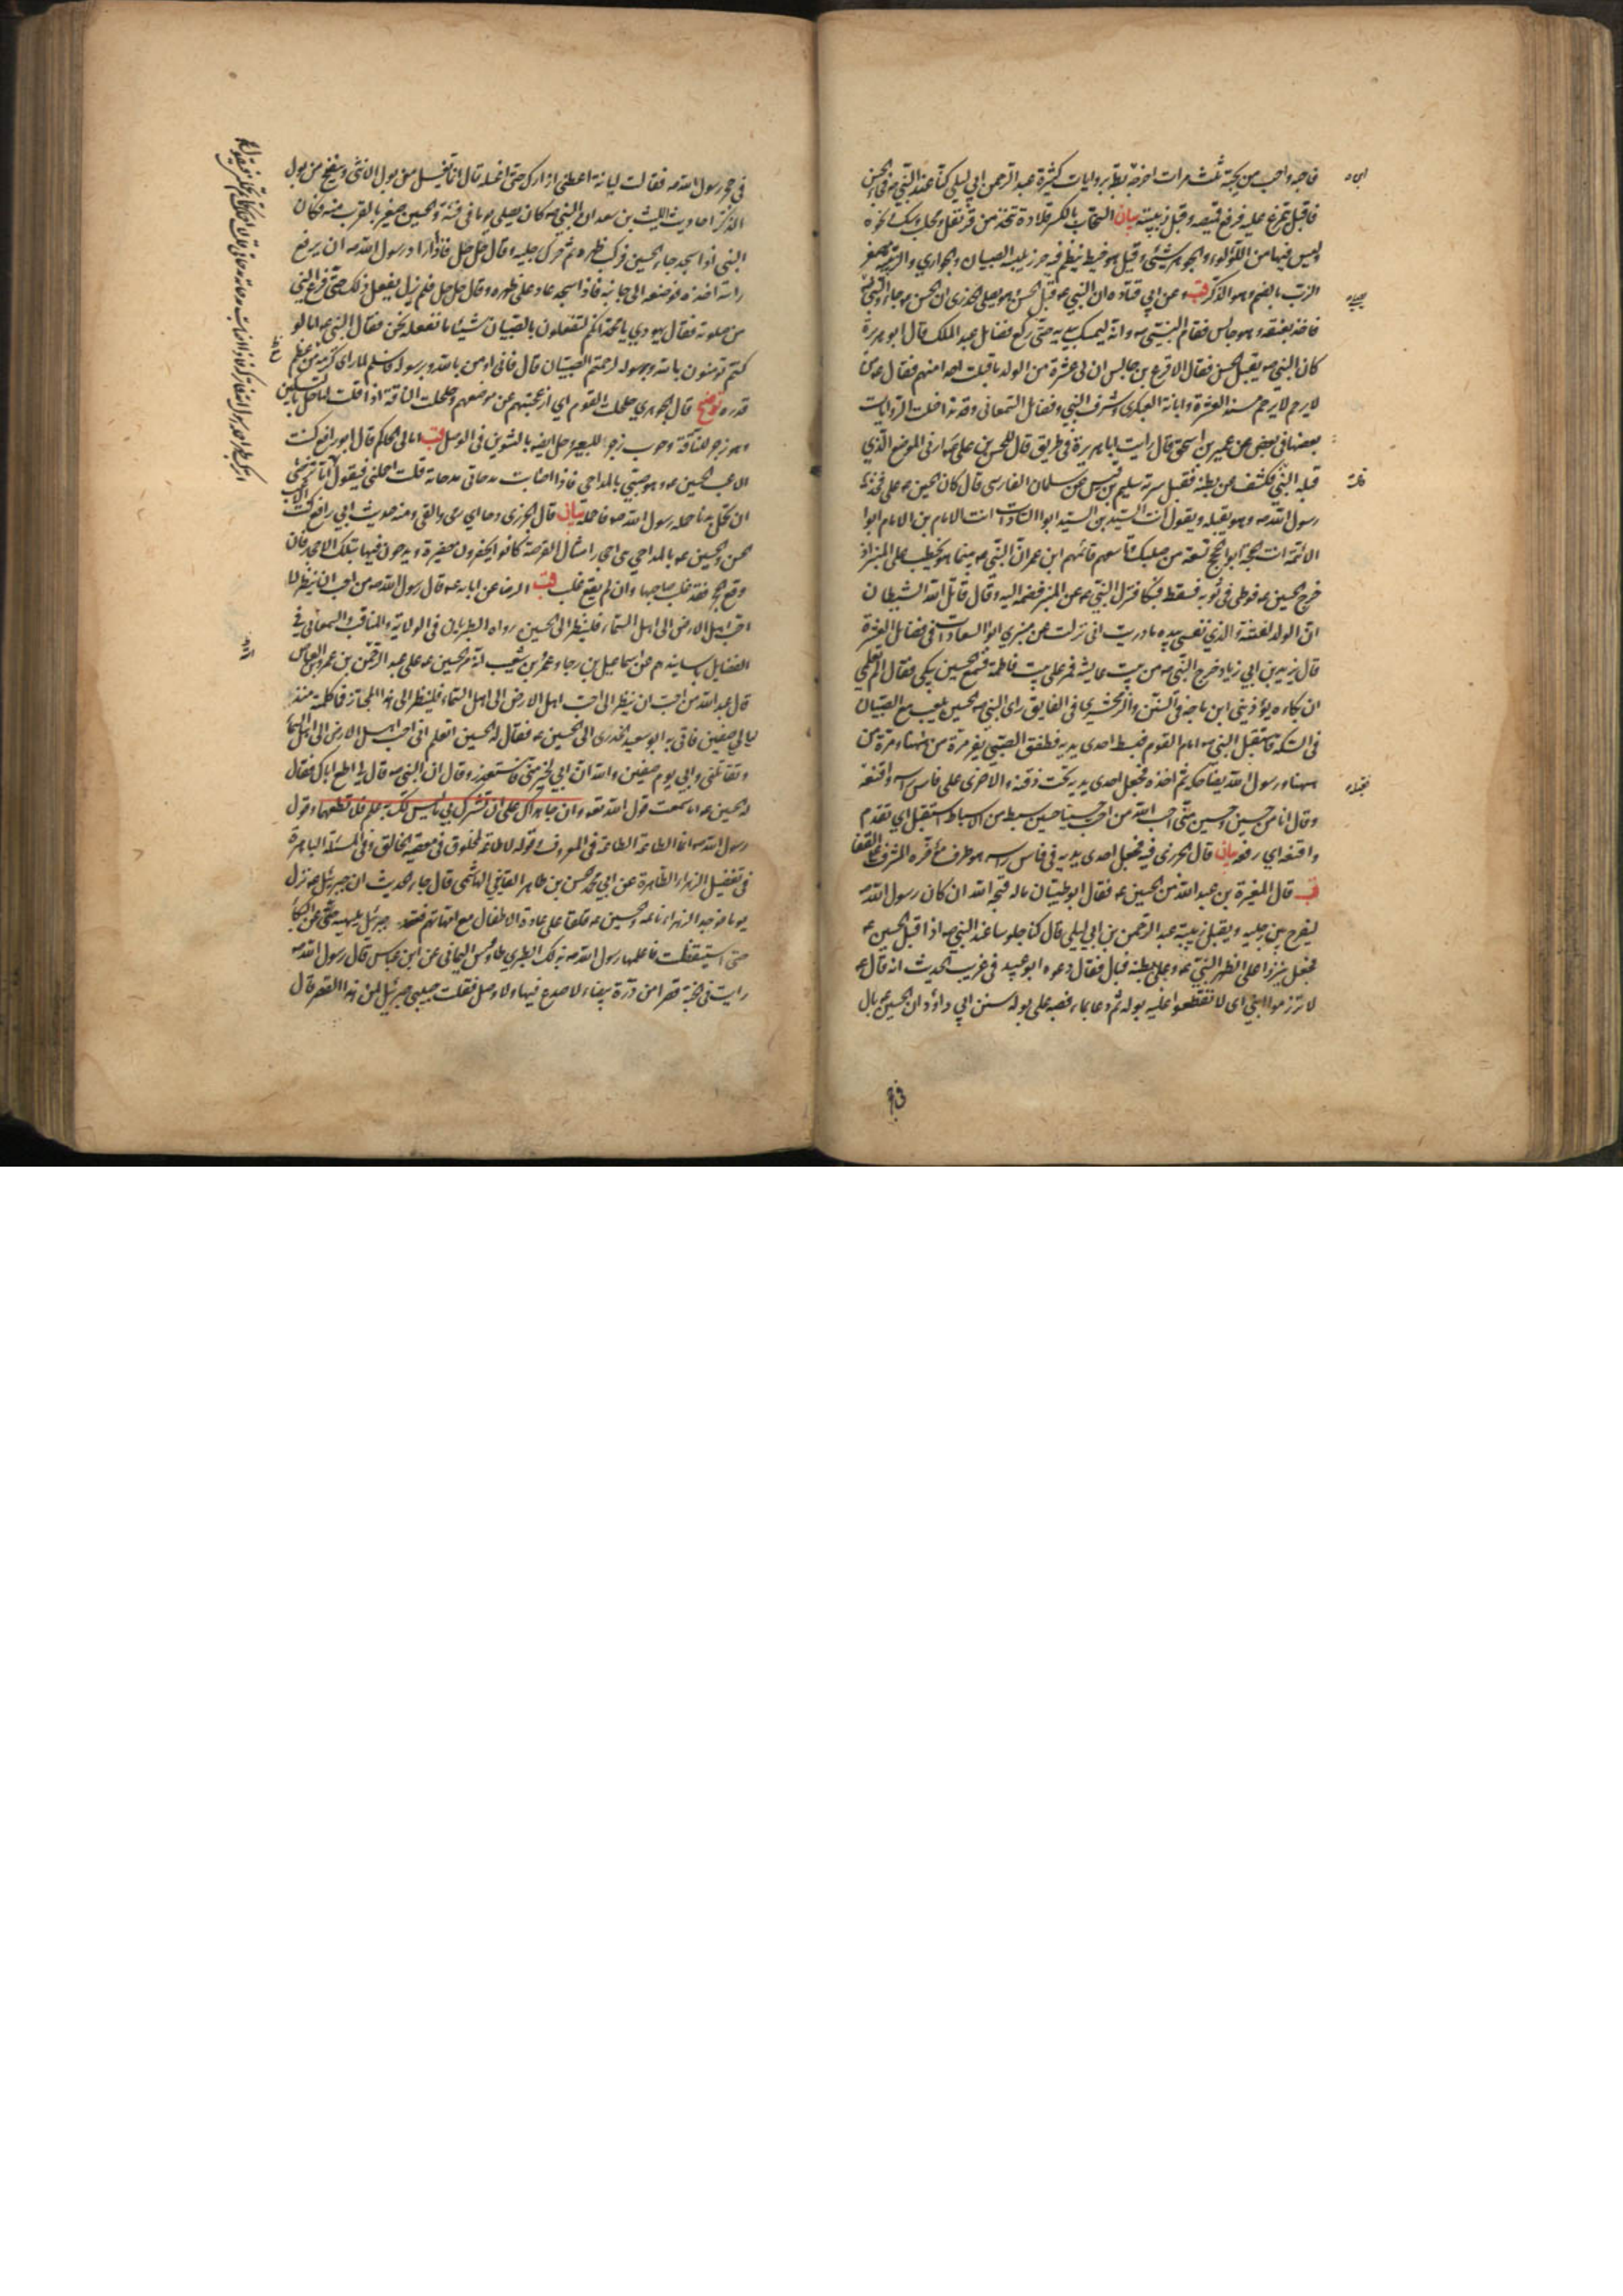 فاحبه واحب من يحبه ثلث مرات اخرجه بطه بروايات كثيرة عبد الرحمن ابي ليلى كنا عند النبي ص فجاء الحسن
فاقبل يتمرغ عليه فرفع قميصه وقبل زبيبته بيان السخاب بالكسر قلادة تتخذ من قرنفل ومحلب وسك ونحوه
وليس فيها من اللؤلؤ والجوهر شيئ وقيل هو خيط ينظم فيه خرز يلبسه الصبيان والجواري والزبيبة مصغر
الزب بالضم وهو الذكر قب وعن ابي قتاده ان النبي ص قبل الحسن وهو يصلي الخدري ان الحسن ع جاء والنبي ص يصلي
فاخذ بعنقه وهو جالس فقام النبي ص وانه ليمسك بيديه حتى ركع فضايل عبد الملك قال ابو هريرة
كان النبي ص يقبل الحسن فقال الاقرع بن حابس ان لي عشرة من الولد ما قبلت احدا منهم فقال ص من
لا يرحم لا يرحم مسند العشرة وابانة العكبري وشرف النبي وفضايل السمعاني وقد تداخلت الروايات
بعضها في بعض عن عمير بن اسحق قال رايت ابا هريرة في طريق قال للحسن بن علي ع ارني الموضع الذي
قبله النبي فكشف عن بطنه فقبل سرته سليم بن قيس عن سلمان الفارسي قال كان الحسين ع على فخذ
رسول الله ص وهو يقبله ويقول انت السيد بن السيد ابو السادات انت الامام بن الامام ابو
الائمة انت الحجة ابو الحجج تسعة من صلبك تاسعهم قائمهم ابن عمر ان النبي ص بينما هو يخطب على المنبر اذ
خرج الحسين ع فوطئ في ثوبه فسقط فبكا فنزل النبي ص عن المنبر فضمه اليه وقال قاتل الله الشيطان
ان الولد لفتنة والذي نفسي بيده ما دريت اني نزلت عن منبري ابو السعادات في فضايل العشرة
قال يزيد بن ابي زياد خرج النبي ص من بيت عايشة فمر على بيت فاطمة فسمع الحسين يبكي فقال الم تعلمي
ان بكاءه يؤذيني ابن ماجه في السنن والزمخشري في الفايق راى النبي ص الحسين يلعب مع الصبيان
في السكة فاستقبل النبي ص امام القوم فبسط احدى يديه فطفق الصبي يفر مرة من ههنا ومرة من
ههنا ورسول الله يضاحكه ثم اخذه فجعل احدى يديه تحت ذقنه والاخرى على فاس راسه واقنعه
وقال انا من حسين وحسين مني احب الله من احب حسينا حسين سبط من الاسباط استقبل اي تقدم
واقنعه اي رفعه بيان قال الجزري فيه فجعل احدى يديه في فاس راسه هو طرف مؤخره المشرف على القفا
قب قال المغيرة بن عبد الله مر الحسين ع فقال ابو ظبيان ما له قبحه الله ان كان رسول الله ص
ليفرج بين رجليه ويقبل زبيبته عبد الرحمن بن ابي ليلى قال كنا جلوسا عند النبي ص اذ اقبل الحسين ع
فجعل ينزو على ظهر النبي ص وعلى بطنه فبال فقال دعوه ابو عبيد في غريب الحديث انه قال ص
لا تزرموا ابني اي لا تقطعوا عليه بوله ثم دعا بماء فصبه على بوله سنن ابي داؤد ان الحسين ع بال
في حجر
في حجر رسول الله ص فقالت لبابة اعطني ازارك حتى اغسله قال انما يغسل من بول الانثى وينضح من بول
الذكر احاديث الليث بن سعد ان النبي ص كان يصلي يوما في فئة والحسين صغير بالقرب منه وكان
النبي اذا سجد جاء الحسين فركب ظهره ثم حرك رجليه وقال حل حل فاذا اراد رسول الله ص ان يرفع
راسه اخذه فوضعه الى جانبه فاذا سجد عاد على ظهره وقال حل حل فلم يزل يفعل ذلك حتى فرغ النبي
من صلوته فقال يهودي يا محمد انكم لتفعلون بالصبيان شيئا ما نفعله نحن فقال النبي ص اما لو
كنتم تؤمنون بالله وبرسوله لرحمتم الصبيان قال فاني اومن بالله وبرسوله فاسلم لما راى كرمه من عظم
قدره توضيح قال الجوهري حلحلت القوم اي ازعجتهم عن موضعهم وحلحلت الناقة اذا قلت لها حل بالتسكين
وهو زجر للناقة وحوب زجر للبعير وحل ايضا بالتنوين في الوصل قب امالي الحاكم قال ابو رافع كنت
الاعب الحسين ع وهو صبي بالمداحي فاذا اصابت مدحاتي مدحاته قلت احملني فيقول اما ترضى
ان تحمل بدنا حمله رسول الله ص فاحمله بيان قال الجزري دحا اي رمى والقى ومنه حديث ابي رافع كنت الاعب
الحسن والحسين ع بالمداحي هي احجار امثال القرصة كانوا يحفرون حفيرة ويدحون فيها بتلك الاحجار فان
وقع الحجر فقد غلب صاحبها وان لم يقع غلب قب الرضا عن ابائه ع قال رسول الله ص من احب ان ينظر الى
احب اهل الارض الى اهل السماء فلينظر الى الحسين رواه الطبريان في الولاية والمناقب والسمعاني في
الفضايل باسانيدهم عن اسماعيل بن رجا وعمرو بن شعيب انه مر الحسين ع على عبد الرحمن بن عمرو العاص
قال عبد الله من احب ان ينظر الى احب اهل الارض الى اهل السماء فلينظر الى هذا المجتاز فما كلمته منذ
ليالي صفين فاتى به ابو سعيد الخدري الى الحسين ع فقال له الحسين اتعلم اني احب اهل الارض الى اهل السماء
وتقاتلني وابي يوم صفين والله ان ابي لخير مني فاستعذر وقال ان النبي ص قال لي اطع اباك فقال
له الحسين ع اما سمعت قول الله تعه وان جاهداك على ان تشرك بي ما ليس لك به علم فلا تطعهما وقول
رسول الله ص انما الطاعة الطاعة في المعروف وقوله لا طاعة لمخلوق في معصية الخالق وفي المسئلة الباهرة
في تفضيل الزهراء الطاهرة عن ابي محمد الحسن بن طاهر القايني الهاشمي قال جاء الحديث ان جبرئيل ع نزل
يوما فوجد الزهراء نائمة والحسين ع قلقا على عادة الاطفال مع امهاتهم فقعد جبرئيل يلهيه عن البكا
حتى استيقظت فاعلمها رسول الله ص بذلك الطبري طاوس اليماني عن ابن عباس قال رسول الله ص
رايت في الجنة قصرا من درة بيضاء لا صدع فيها ولا وصل فقلت حبيبي جبرئيل لمن هذا القصر قال